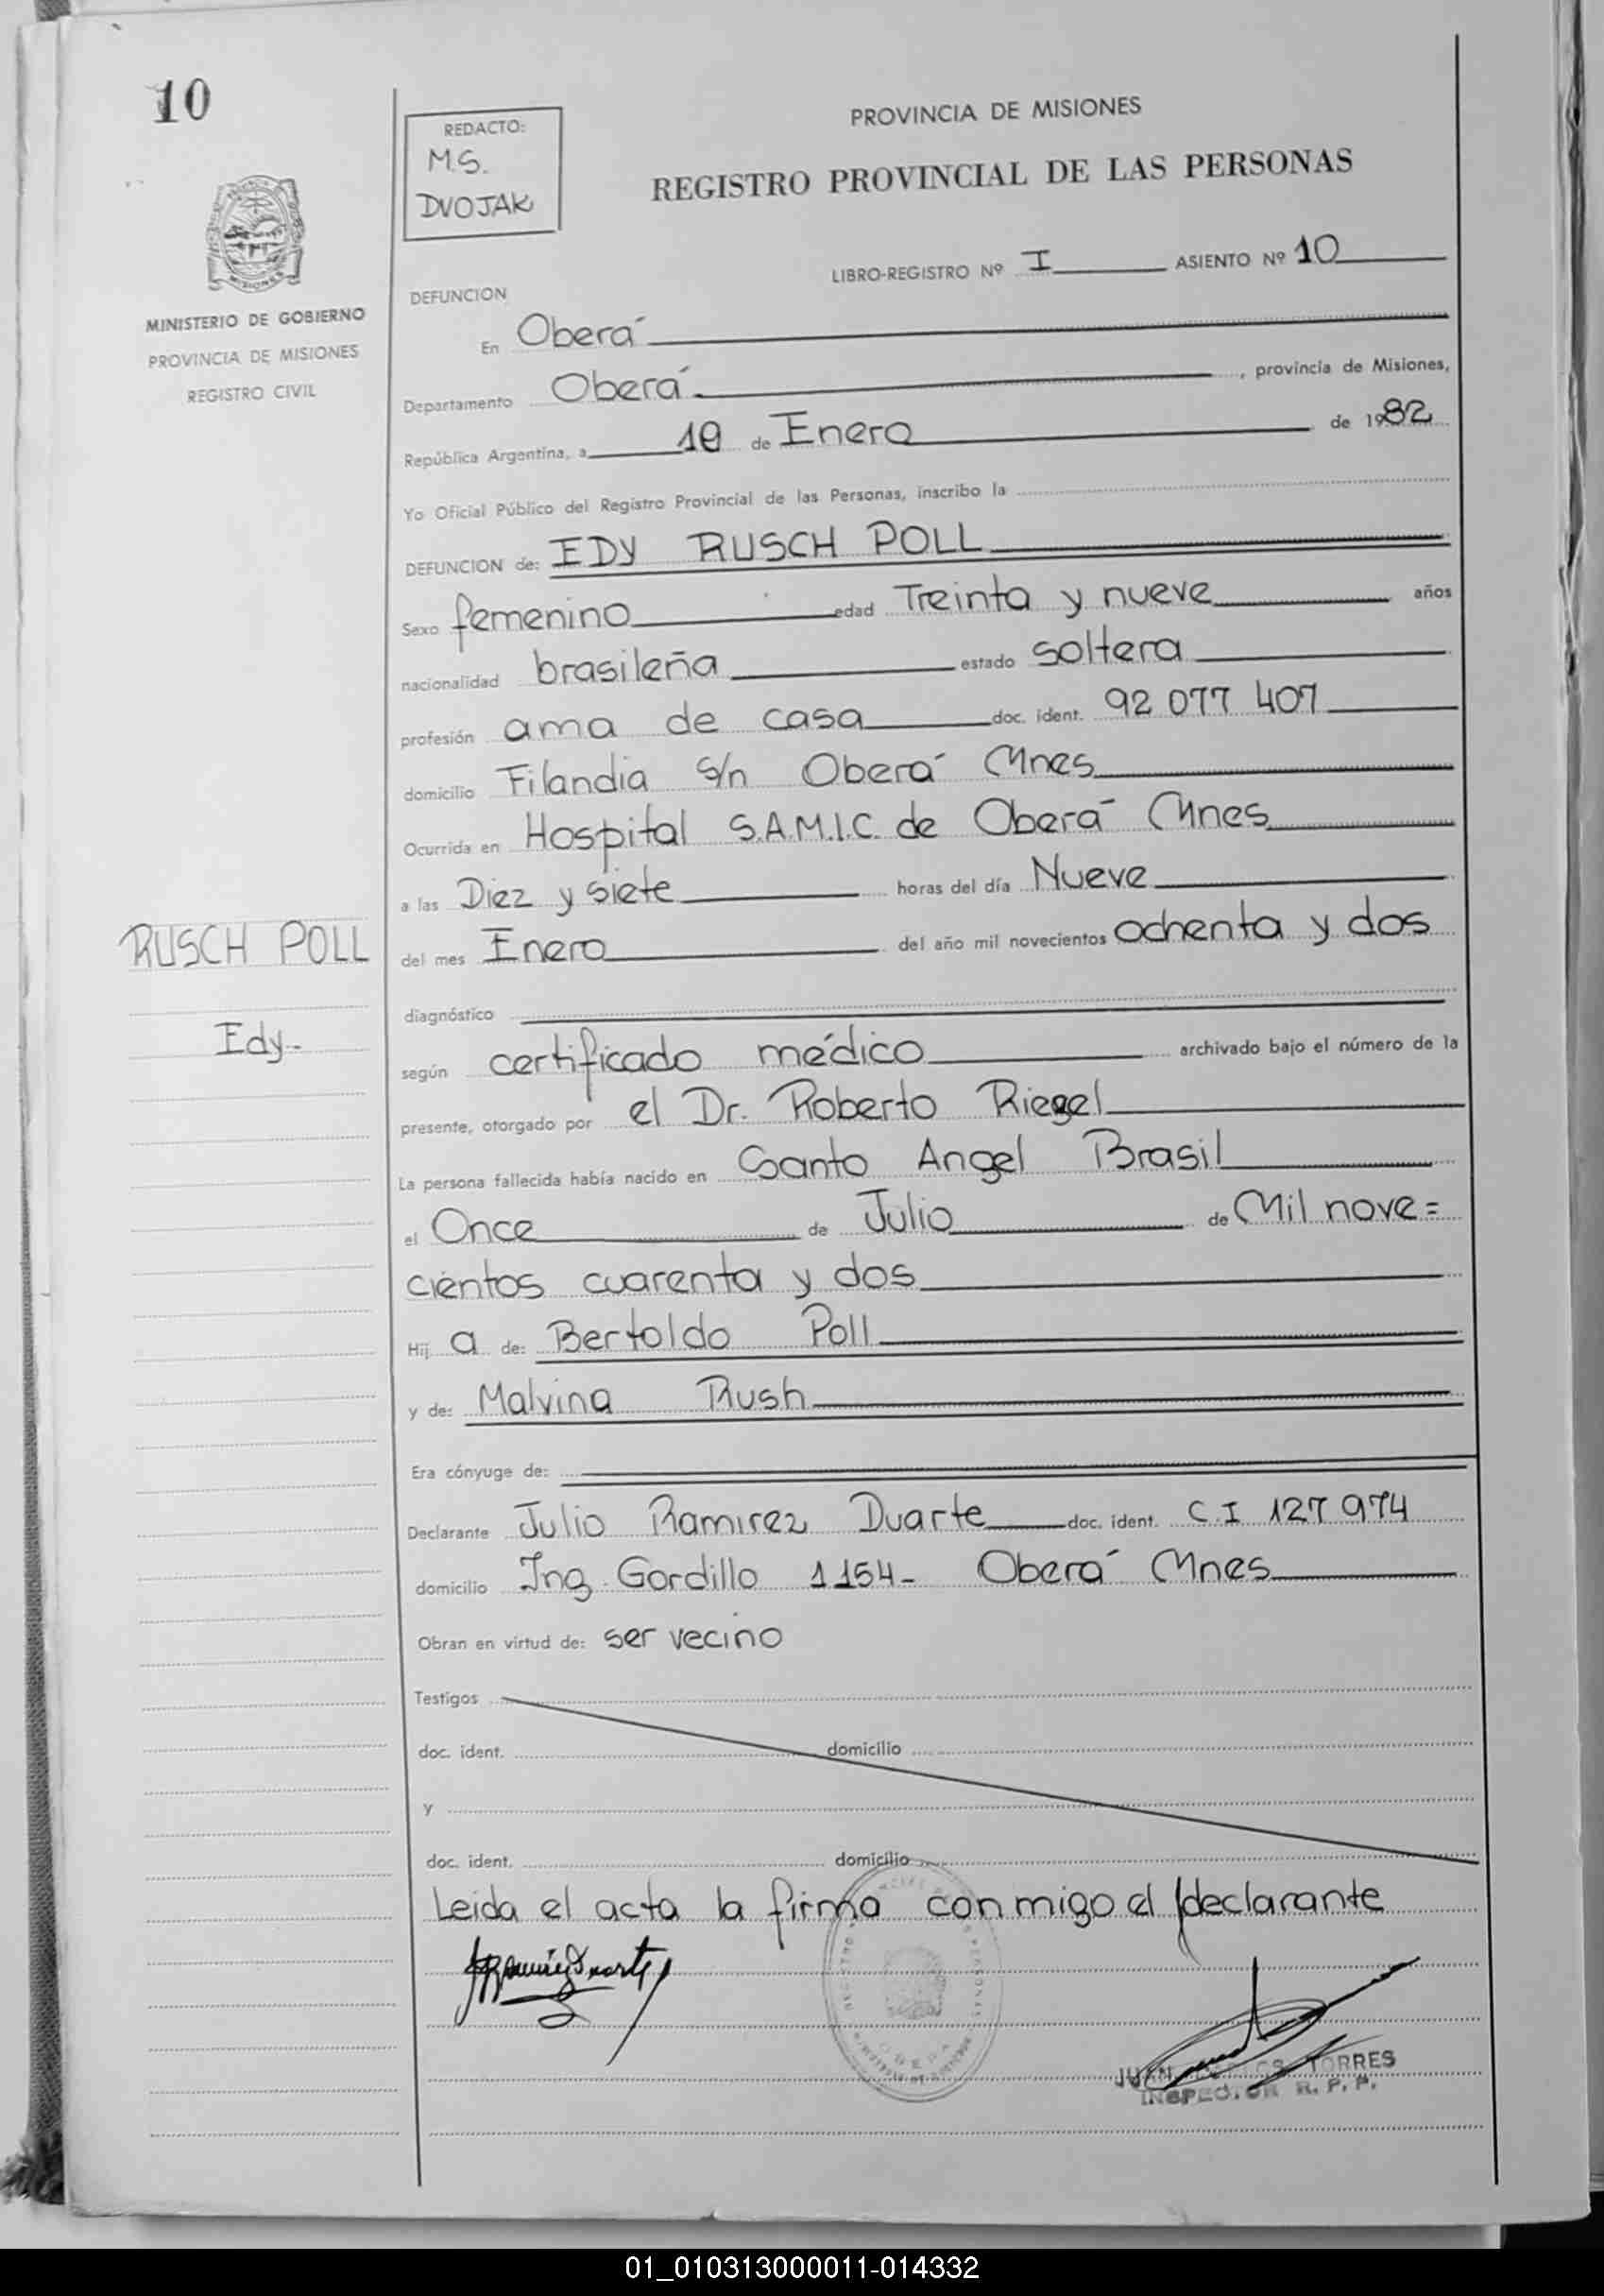 10
REDACTO:
M.S.
DVOJAK
PROVINCIA DE MISIONES
REGISTRO PROVINCIAL DE LAS PERSONAS
LIBRO-REGISTRO Nº I ASIENTO Nº 10
MISIONES
MINISTERIO DE GOBIERNO
PROVINCIA DE MISIONES
REGISTRO CIVIL
DEFUNCION
En Oberá
Departamento Oberá, provincia de Misiones,
República Argentina, a de Enero de 1982
Yo Oficial Público del Registro Provincial de las Personas, inscribo la
DEFUNCION de: EDY RUSCH POLL
Sexo femenino edad Treinta y nueve años
nacionalidad brasileña estado soltera
profesión ama de casa doc. ident. 92 077 407
domicilio Filandia s/n Oberá Mnes
Ocurrida en Hospital S.A.M.I.C. de Oberá Mnes
a las Diez y siete horas del día Nueve
del mes Enero del año mil novecientos ochenta y dos
RUSCH POLL
Edy-
diagnóstico
según certificado médico archivado bajo el número de la
presente, otorgado por el Dr. Roberto Riegel
La persona fallecida había nacido en Santo Angel Brasil
el Once de Julio de Mil nove=
cientos cuarenta y dos
Hij a de: Bertoldo Poll
y de: Malvina Rush
Era cónyuge de:
Declarante Julio Ramirez Duarte doc. ident. C.I 127 974
domicilio Ing. Gordillo 1154- Oberá Mnes
Obran en virtud de: ser vecino
Testigos
doc. ident. domicilio
y
doc. ident. domicilio
Leida el acta la firma conmigo el declarante
JUAN CARLOS TORRES
INSPECTOR R. P. P.
01_010313000011-014332